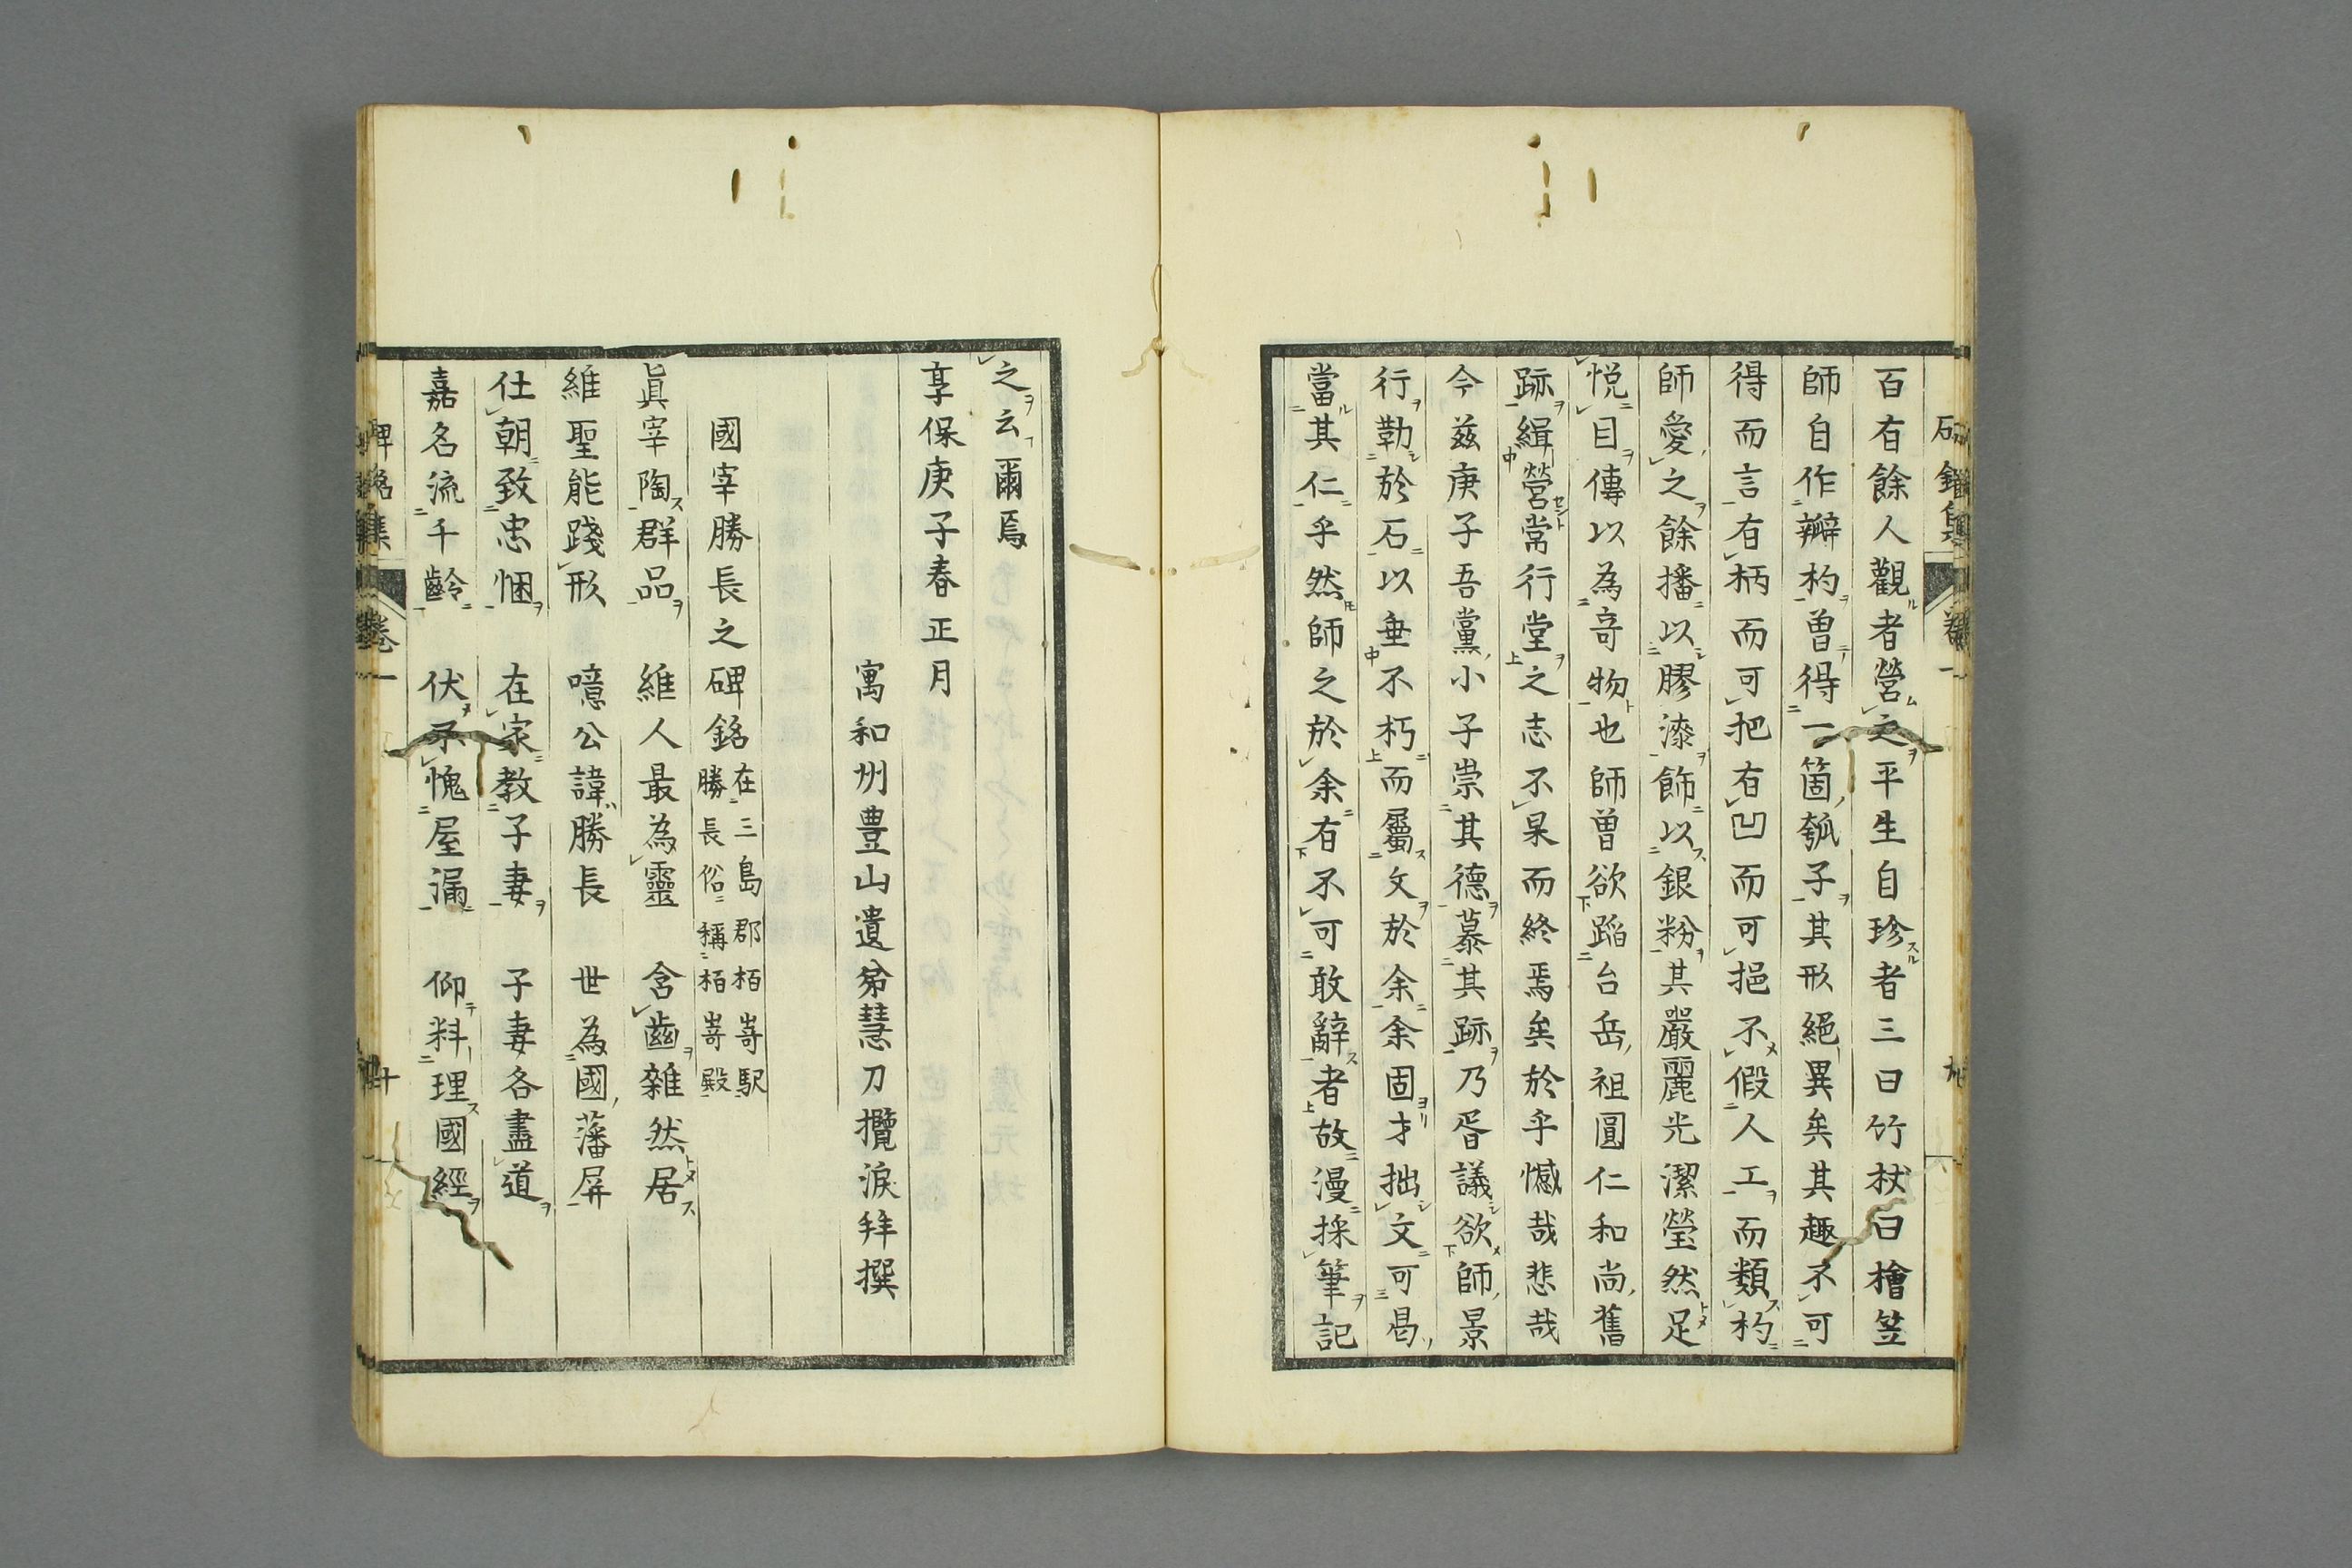 百有餘人觀者營之平生自珍者三曰竹杖曰檜笠
師自作瓣杓曽得一箇瓠子其形絕異矣其趣不可
得而言有柄而可把有凹而可挹不假人工而類杓
師愛之餘播以膠漆飾以銀粉其嚴麗光潔瑩然足
悅目傳以為竒物也師曽欲蹈台岳祖圓仁和尚舊
跡緝營常行堂之志不果而終焉矣於乎憾哉悲哉
今茲庚子吾黨小子崇其德慕其跡乃胥議欲師景
行勒於石以垂不朽而屬文於余余固才拙文可曷
當其仁乎然師之於余有不可敢辭者故漫採筆記
之云爾焉
享保庚子春正月
寓和州豊山遺弟慧刀攬淚拜撰
國宰勝長之碑銘 在三島郡栢嵜駅
勝長俗稱栢嵜殿
眞宰陶群品 維人最為靈 含齒雜然居
維聖能踐形 噫公諱勝長 世為國藩屏
仕朝致忠悃 在家教子妻 子妻各盡道
嘉名流千齡 伏不愧屋漏 仰料理國經
碑銘集 卷一 十